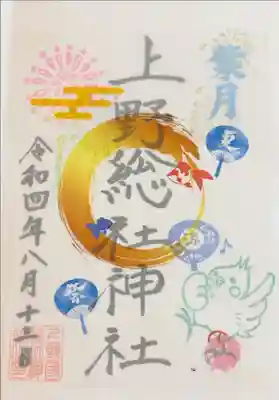 葉月
夏
上野総社神社
祭
令和四年八月十三日